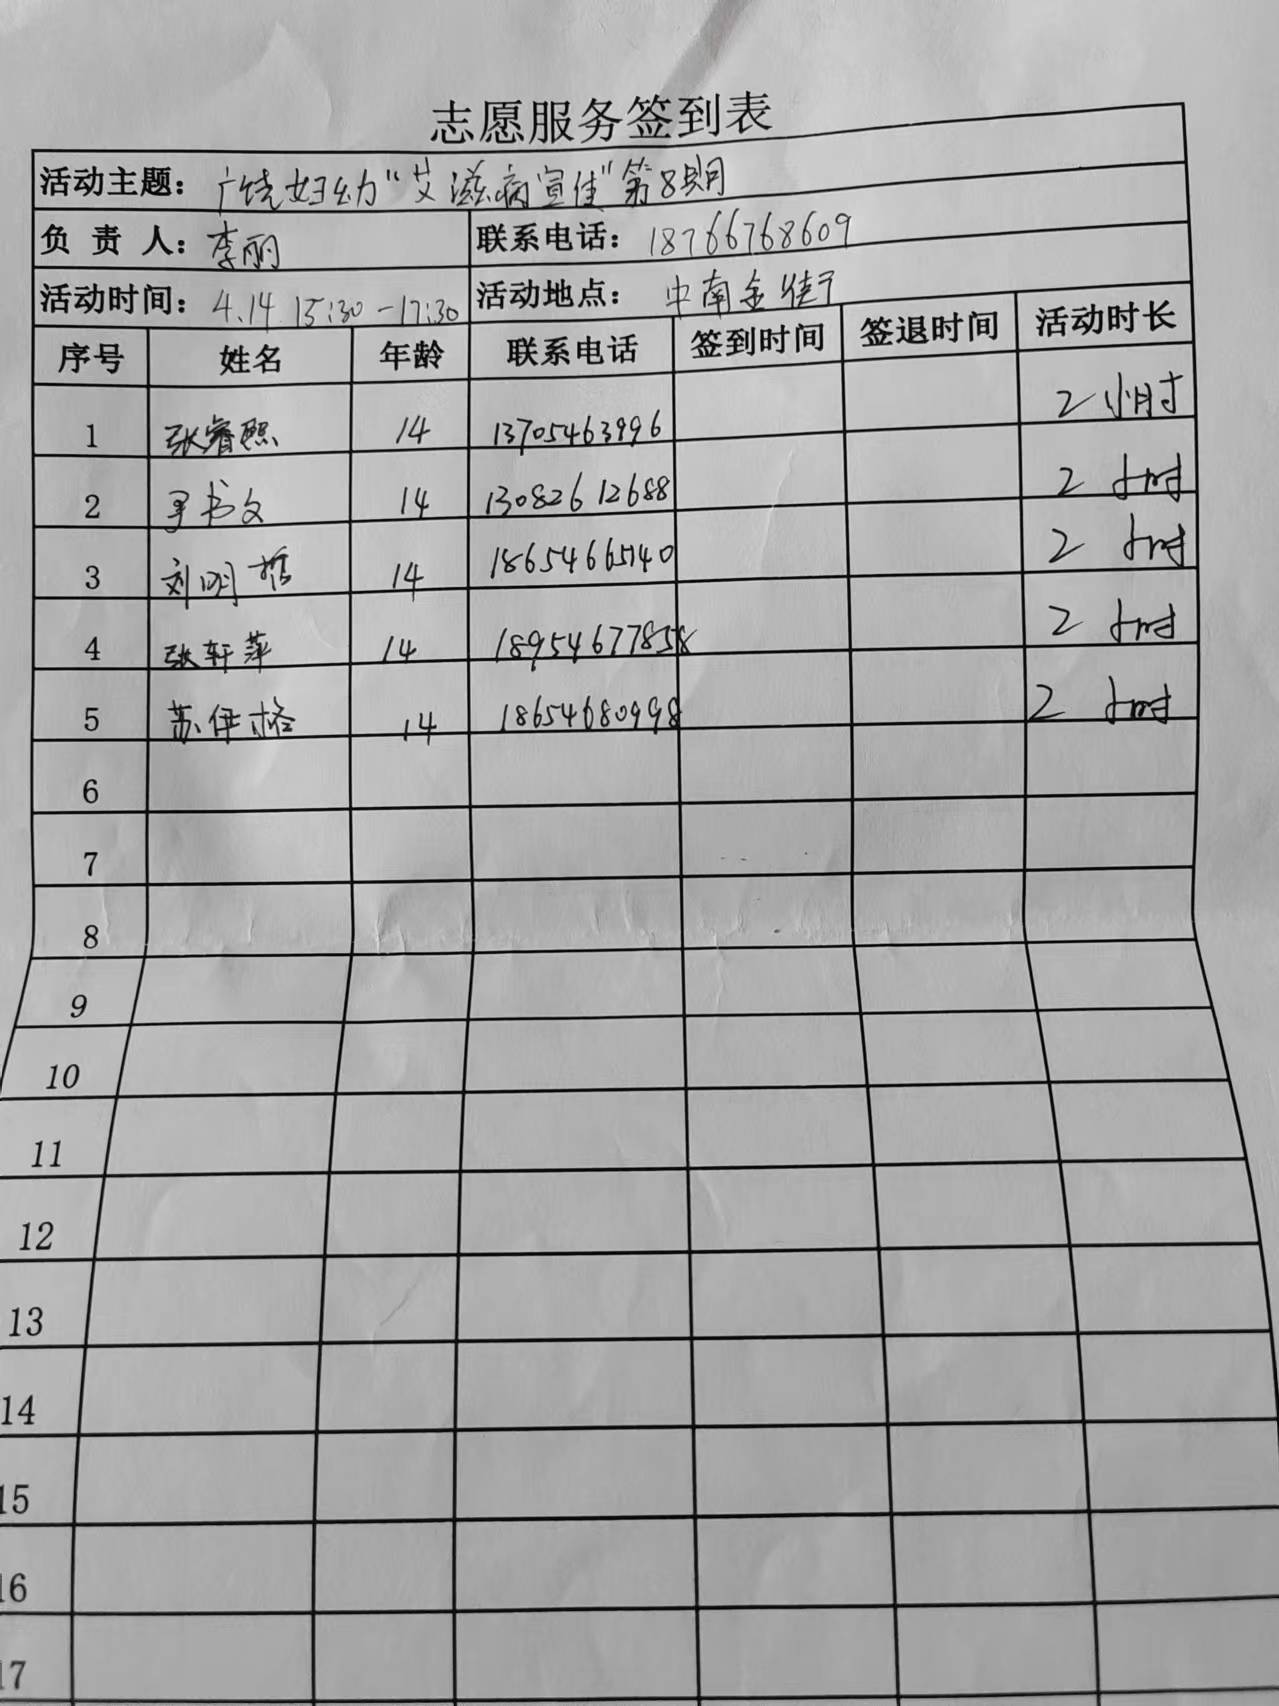 志愿服务签到表
活动主题: 广饶妇幼“艾滋病宣传”第8期
负 责 人: 李丽 联系电话: 18766768609
活动时间: 4.14 15:30-17:30 活动地点: 中南金街
序号 姓名 年龄 联系电话 签到时间 签退时间 活动时长
1 张睿熙 14 13705463996 2小时
2 书文 14 13082612688 2小时
3 刘明哲 14 18654665140 2小时
4 张轩萍 14 18954677858 2小时
5 苏伊格 14 18654680998 2小时
6
7
8
9
10
11
12
13
14
15
16
17